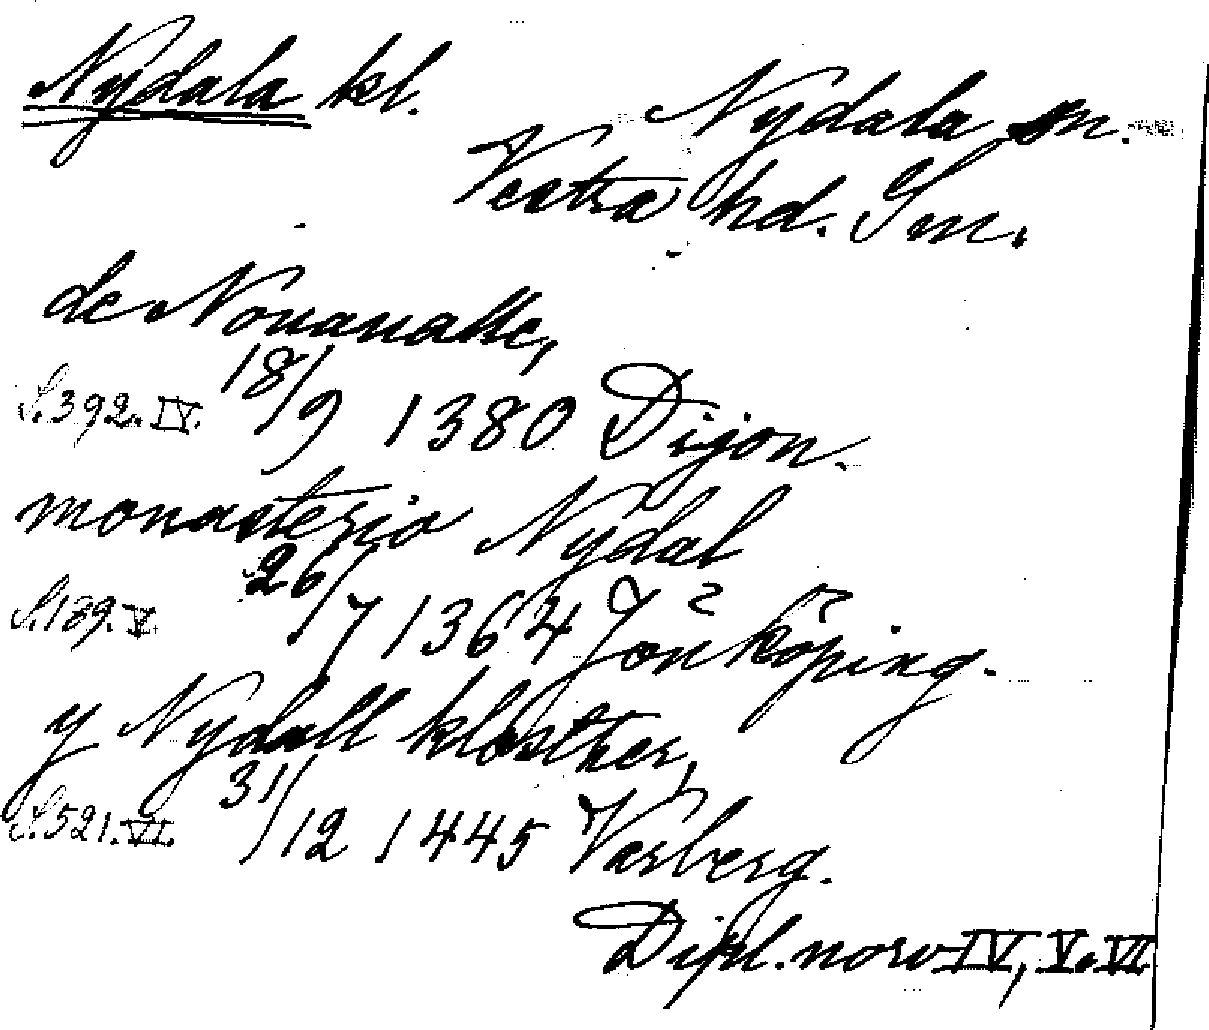 Nydala kl.
Nydala sn.
Vestra hd. Sm.
de Nouaualle,
S. 392. IV. 18/9 1380 Dijon.
monasterio Nydal
S. 189. V. 26/7 1364 Jönköping.
y Nydall kloster,
S. 521. VI. 31/12 1445 Varberg.
Dipl. norv IV, V. VI